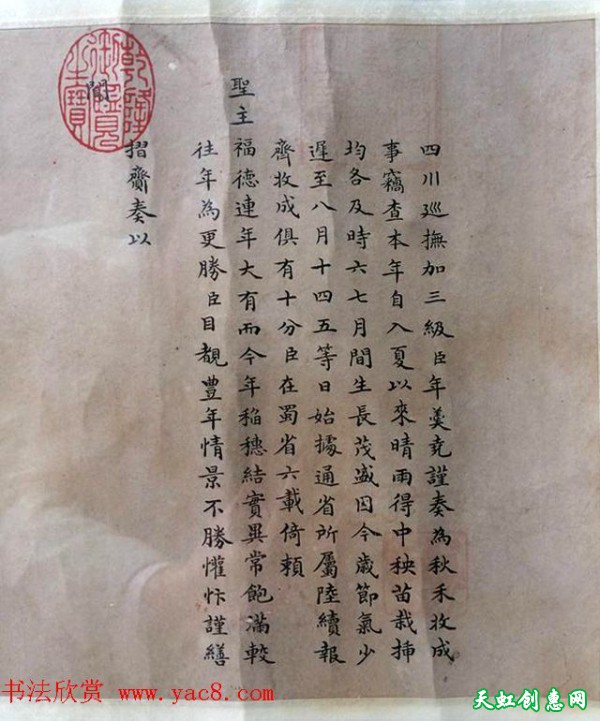 四川廵撫加三級臣年羹堯謹奏為秋禾收成
事竊查本年自入夏以來晴雨得中秧苗栽揷
均各及時六七月間生長茂盛因今歲節氣少
遲至八月十四五等日始據通省所屬陸續報
齊收成俱有十分臣在蜀省六載倚賴
聖主福德連年大有而今年稻穗結實異常飽滿較
往年為更勝臣目覩豐年情景不勝懽忭謹繕
摺齎奏以
聞
乾隆御覽之寶
书法欣赏 www.yac8.com
天虹创惠网